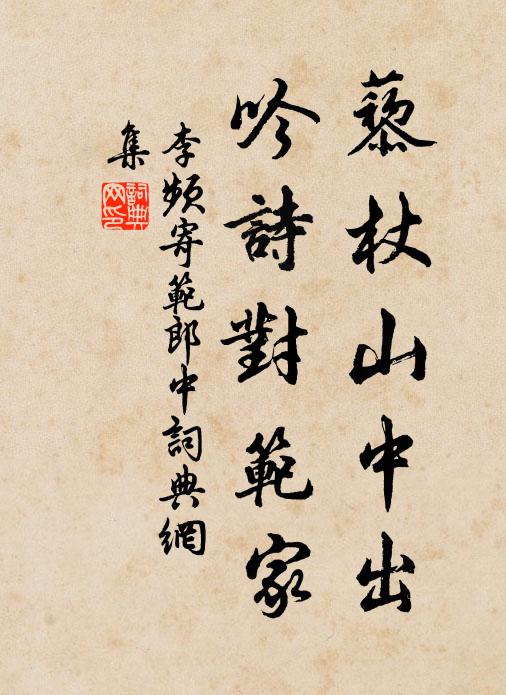 藜杖山中出
吟詩對範家
李頻寄範郎中詞典網
集
詞典
网印